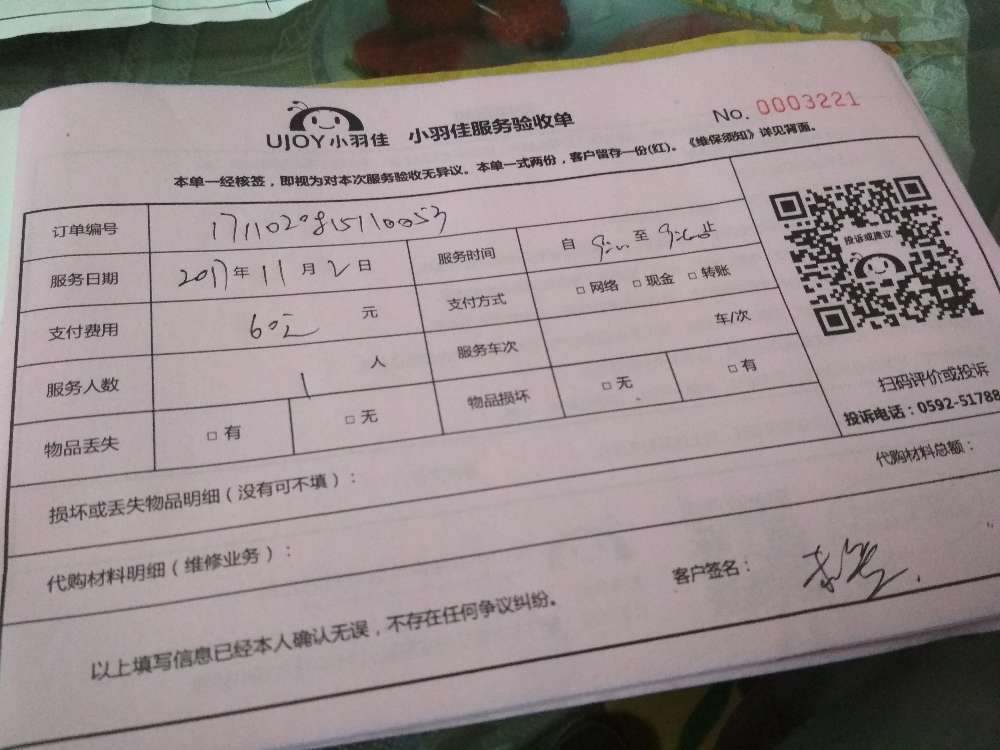 UJOY小羽佳 小羽佳服务验收单 No. 0003221
本单一经核签，即视为对本次服务验收无异议。本单一式两份，客户留存一份(红)。《维保须知》详见背面。
订单编号 1711020815110053
服务日期 2017年11月2日 服务时间 自 至 止
支付费用 60元 元 支付方式 □ 网络 □ 现金 □ 转账
服务人数 1 人 服务车次 车/次
物品丢失 □ 有 □ 无 物品损坏 □ 无 □ 有
投诉或建议
扫码评价或投诉
投诉电话：0592-51788
损坏或丢失物品明细（没有可不填）：
代购材料总额：
代购材料明细（维修业务）：
客户签名：
以上填写信息已经本人确认无误，不存在任何争议纠纷。